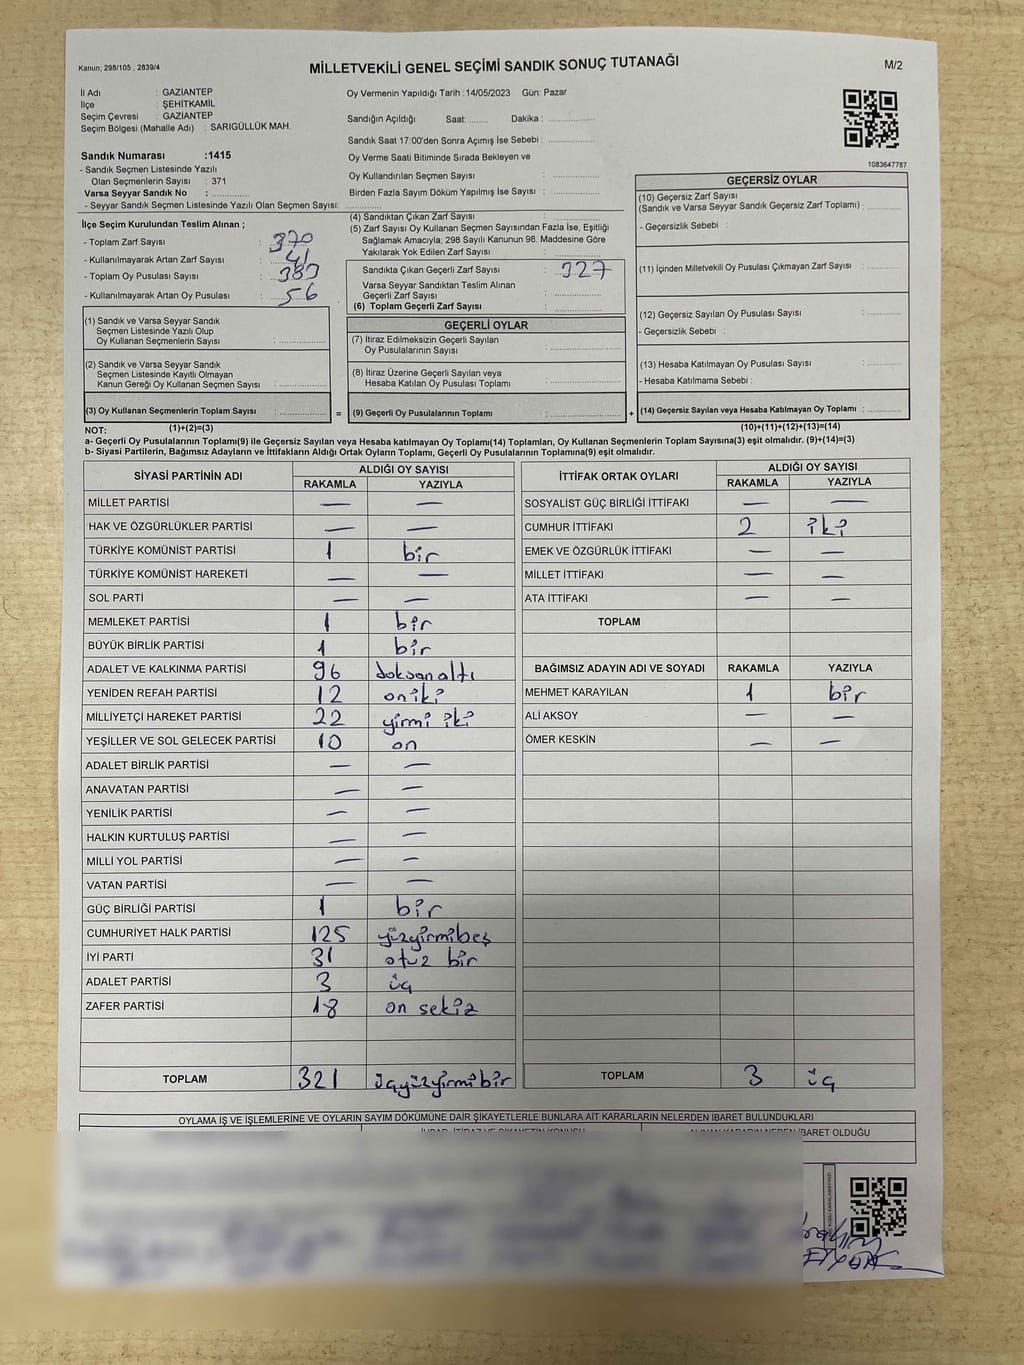 Kanun; 298/105 , 2839/4
MİLLETVEKİLİ GENEL SEÇİMİ SANDIK SONUÇ TUTANAĞI
M/2
İl Adı : GAZİANTEP
İlçe : ŞEHİTKAMİL
Seçim Çevresi : GAZİANTEP
Seçim Bölgesi (Mahalle Adı) : SARIGÜLLÜK MAH.
Sandık Numarası :1415
- Sandık Seçmen Listesinde Yazılı
Olan Seçmenlerin Sayısı : 371
Varsa Seyyar Sandık No :
- Seyyar Sandık Seçmen Listesinde Yazılı Olan Seçmen Sayısı:
Oy Vermenin Yapıldığı Tarih :14/05/2023 Gün: Pazar
Sandığın Açıldığı Saat: Dakika :
Sandık Saat 17:00'den Sonra Açılmış İse Sebebi :
Oy Verme Saati Bitiminde Sırada Bekleyen ve
Oy Kullandırılan Seçmen Sayısı :
Birden Fazla Sayım Döküm Yapılmış İse Sayısı :
1083647787
İlçe Seçim Kurulundan Teslim Alınan ;
- Toplam Zarf Sayısı : 370
- Kullanılmayarak Artan Zarf Sayısı : 41
- Toplam Oy Pusulası Sayısı : 383
- Kullanılmayarak Artan Oy Pusulası : 56
(1) Sandık ve Varsa Seyyar Sandık
Seçmen Listesinde Yazılı Olup
Oy Kullanan Seçmenlerin Sayısı :
(2) Sandık ve Varsa Seyyar Sandık
Seçmen Listesinde Kayıtlı Olmayan
Kanun Gereği Oy Kullanan Seçmen Sayısı :
(3) Oy Kullanan Seçmenlerin Toplam Sayısı :
(4) Sandıktan Çıkan Zarf Sayısı :
(5) Zarf Sayısı Oy Kullanan Seçmen Sayısından Fazla İse, Eşitliği
Sağlamak Amacıyla; 298 Sayılı Kanunun 98. Maddesine Göre
Yakılarak Yok Edilen Zarf Sayısı :
Sandıkta Çıkan Geçerli Zarf Sayısı : 327
Varsa Seyyar Sandıktan Teslim Alınan
Geçerli Zarf Sayısı :
(6) Toplam Geçerli Zarf Sayısı :
GEÇERLİ OYLAR
(7) İtiraz Edilmeksizin Geçerli Sayılan
Oy Pusulalarının Sayısı :
(8) İtiraz Üzerine Geçerli Sayılan veya
Hesaba Katılan Oy Pusulası Toplamı :
= (9) Geçerli Oy Pusulalarının Toplamı :
GEÇERSİZ OYLAR
(10) Geçersiz Zarf Sayısı
(Sandık ve Varsa Seyyar Sandık Geçersiz Zarf Toplamı) :
- Geçersizlik Sebebi :
(11) İçinden Milletvekili Oy Pusulası Çıkmayan Zarf Sayısı :
(12) Geçersiz Sayılan Oy Pusulası Sayısı :
- Geçersizlik Sebebi :
(13) Hesaba Katılmayan Oy Pusulası Sayısı :
- Hesaba Katılmama Sebebi :
+ (14) Geçersiz Sayılan veya Hesaba Katılmayan Oy Toplamı :
NOT: (1)+(2)=(3) (10)+(11)+(12)+(13)=(14)
a- Geçerli Oy Pusulalarının Toplamı(9) ile Geçersiz Sayılan veya Hesaba katılmayan Oy Toplamı(14) Toplamları, Oy Kullanan Seçmenlerin Toplam Sayısına(3) eşit olmalıdır. (9)+(14)=(3)
b- Siyasi Partilerin, Bağımsız Adayların ve İttifakların Aldığı Ortak Oyların Toplamı, Geçerli Oy Pusulalarının Toplamına(9) eşit olmalıdır.
SİYASİ PARTİNİN ADI ALDIĞI OY SAYISI
RAKAMLA YAZIYLA
MİLLET PARTİSİ — —
HAK VE ÖZGÜRLÜKLER PARTİSİ — —
TÜRKİYE KOMÜNİST PARTİSİ 1 bir
TÜRKİYE KOMÜNİST HAREKETİ — —
SOL PARTİ — —
MEMLEKET PARTİSİ 1 bir
BÜYÜK BİRLİK PARTİSİ 1 bir
ADALET VE KALKINMA PARTİSİ 96 doksanaltı
YENİDEN REFAH PARTİSİ 12 oniki
MİLLİYETÇİ HAREKET PARTİSİ 22 yirmi iki
YEŞİLLER VE SOL GELECEK PARTİSİ 10 on
ADALET BİRLİK PARTİSİ — —
ANAVATAN PARTİSİ — —
YENİLİK PARTİSİ — —
HALKIN KURTULUŞ PARTİSİ — —
MİLLİ YOL PARTİSİ — —
VATAN PARTİSİ — —
GÜÇ BİRLİĞİ PARTİSİ 1 bir
CUMHURİYET HALK PARTİSİ 125 yüzyirmibeş
İYİ PARTİ 31 otuz bir
ADALET PARTİSİ 3 üç
ZAFER PARTİSİ 18 on sekiz
TOPLAM 321 üçyüzyirmibir
İTTİFAK ORTAK OYLARI ALDIĞI OY SAYISI
RAKAMLA YAZIYLA
SOSYALİST GÜÇ BİRLİĞİ İTTİFAKI — —
CUMHUR İTTİFAKI 2 iki
EMEK VE ÖZGÜRLÜK İTTİFAKI — —
MİLLET İTTİFAKI — —
ATA İTTİFAKI — —
TOPLAM
BAĞIMSIZ ADAYIN ADI VE SOYADI RAKAMLA YAZIYLA
MEHMET KARAYILAN 1 bir
ALİ AKSOY — —
ÖMER KESKİN — —
TOPLAM 3 üç
OYLAMA İŞ VE İŞLEMLERİNE VE OYLARIN SAYIM DÖKÜMÜNE DAİR ŞİKAYETLERLE BUNLARA AİT KARARLARIN NELERDEN İBARET BULUNDUKLARI
İBARET OLDUĞU